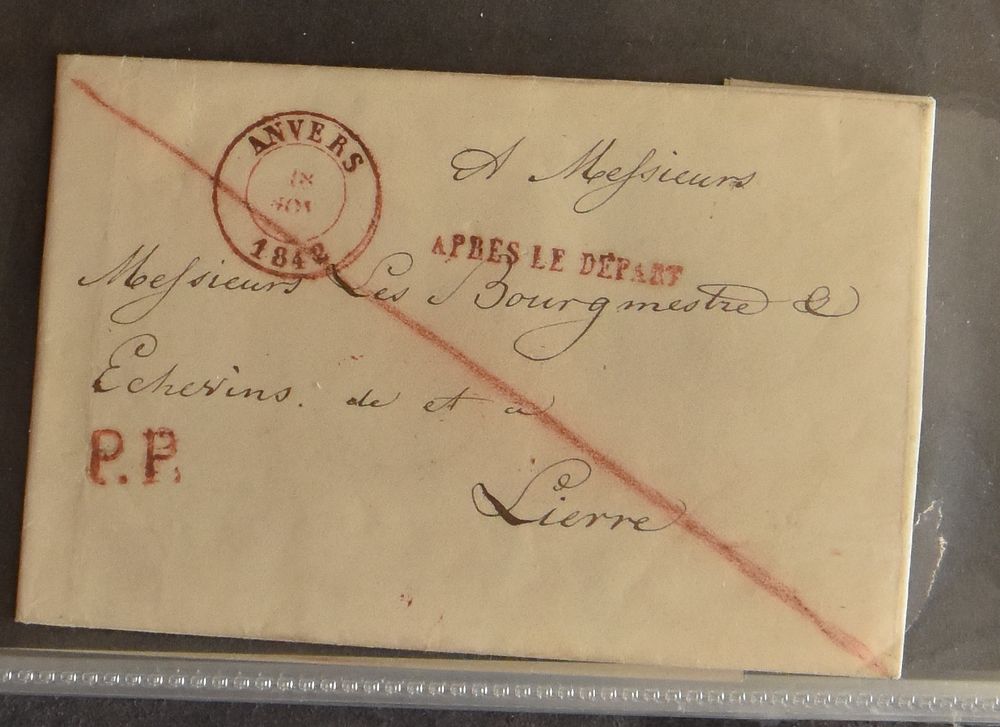 ANVERS
18
NOV
1842
A Messieurs
APRES LE DÉPART
Messieurs Les Bourgmestre &
Echevins. de et à
P.P.
Lierre